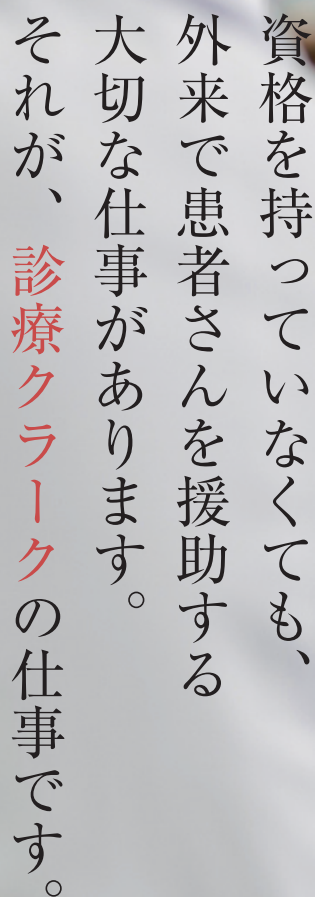 資格を持っていなくても、
外来で患者さんを援助する
大切な仕事があります。
それが、診療クラークの仕事です。